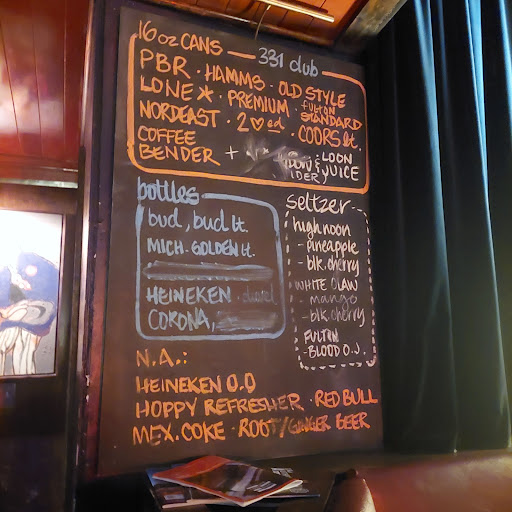 16 oz CANS
331 club
PBR · HAMMS · OLD STYLE
LONE ★ · PREMIUM · FULTON STANDARD
NORDEAST · 2♡ed · COORS Lt.
COFFEE BENDER + LOON JUICE
bottles
bud, bud lt.
MICH. GOLDEN lt.
HEINEKEN ·
CORONA,
seltzer
high noon
- pineapple
- blk. cherry
WHITE CLAW
- mango
- blk. cherry
FULTON
- BLOOD O.J.
N.A.:
HEINEKEN 0.0
HOPPY REFRESHER · RED BULL
MEX. COKE · ROOT/GINGER BEER